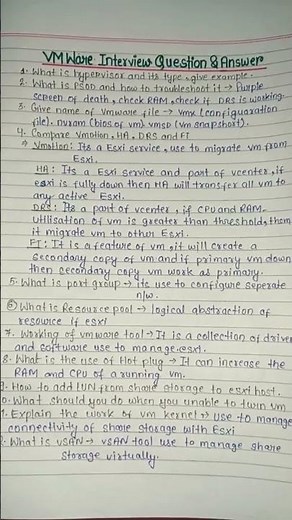 VMWare Interview Question & Answer
1. What is hypervisor and its type, give example.
2. What is PSOD and how to troubleshoot it → Purple
screen of death, check RAM, check if DRS is working.
3. Give name of Vmware file → Vmx (configuaration
file). nvram (bios of vm) vmsd (vm snapshort).
4. Compare Vmotion, HA, DRS and FT
Vmotion: Its a Esxi service, use to migrate vm from
Esxi.
HA: Its a Esxi service and part of vcenter, if
esxi is fully down then HA will transfer all vm to
any active Esxi.
DRS: Its a part of vcenter, if CPU and RAM
Utilisation of vm is greater than threshold, then
it migrate vm to other Esxi.
FT: It is a feature of vm, it will create a
Secondary copy of vm and if primary vm down
then secondary copy vm work as primary.
5. What is port group → its use to configure seperate
n/w.
6 What is Resource pool → logical abstraction of
resource if esxi
7. Working of vmware tool → It is a collection of driver
and software use to manage esxi.
8. What is the use of Hot plug → It can increase the
RAM and CPU of a running vm.
How to add LUN from share storage to esxi host.
What should you do when you unable to turn vm
Explain the work of vm kernel → use to manage
connectivity of share storage with Esxi
What is vSAN → vSAN tool use to manage share
storage virtually.